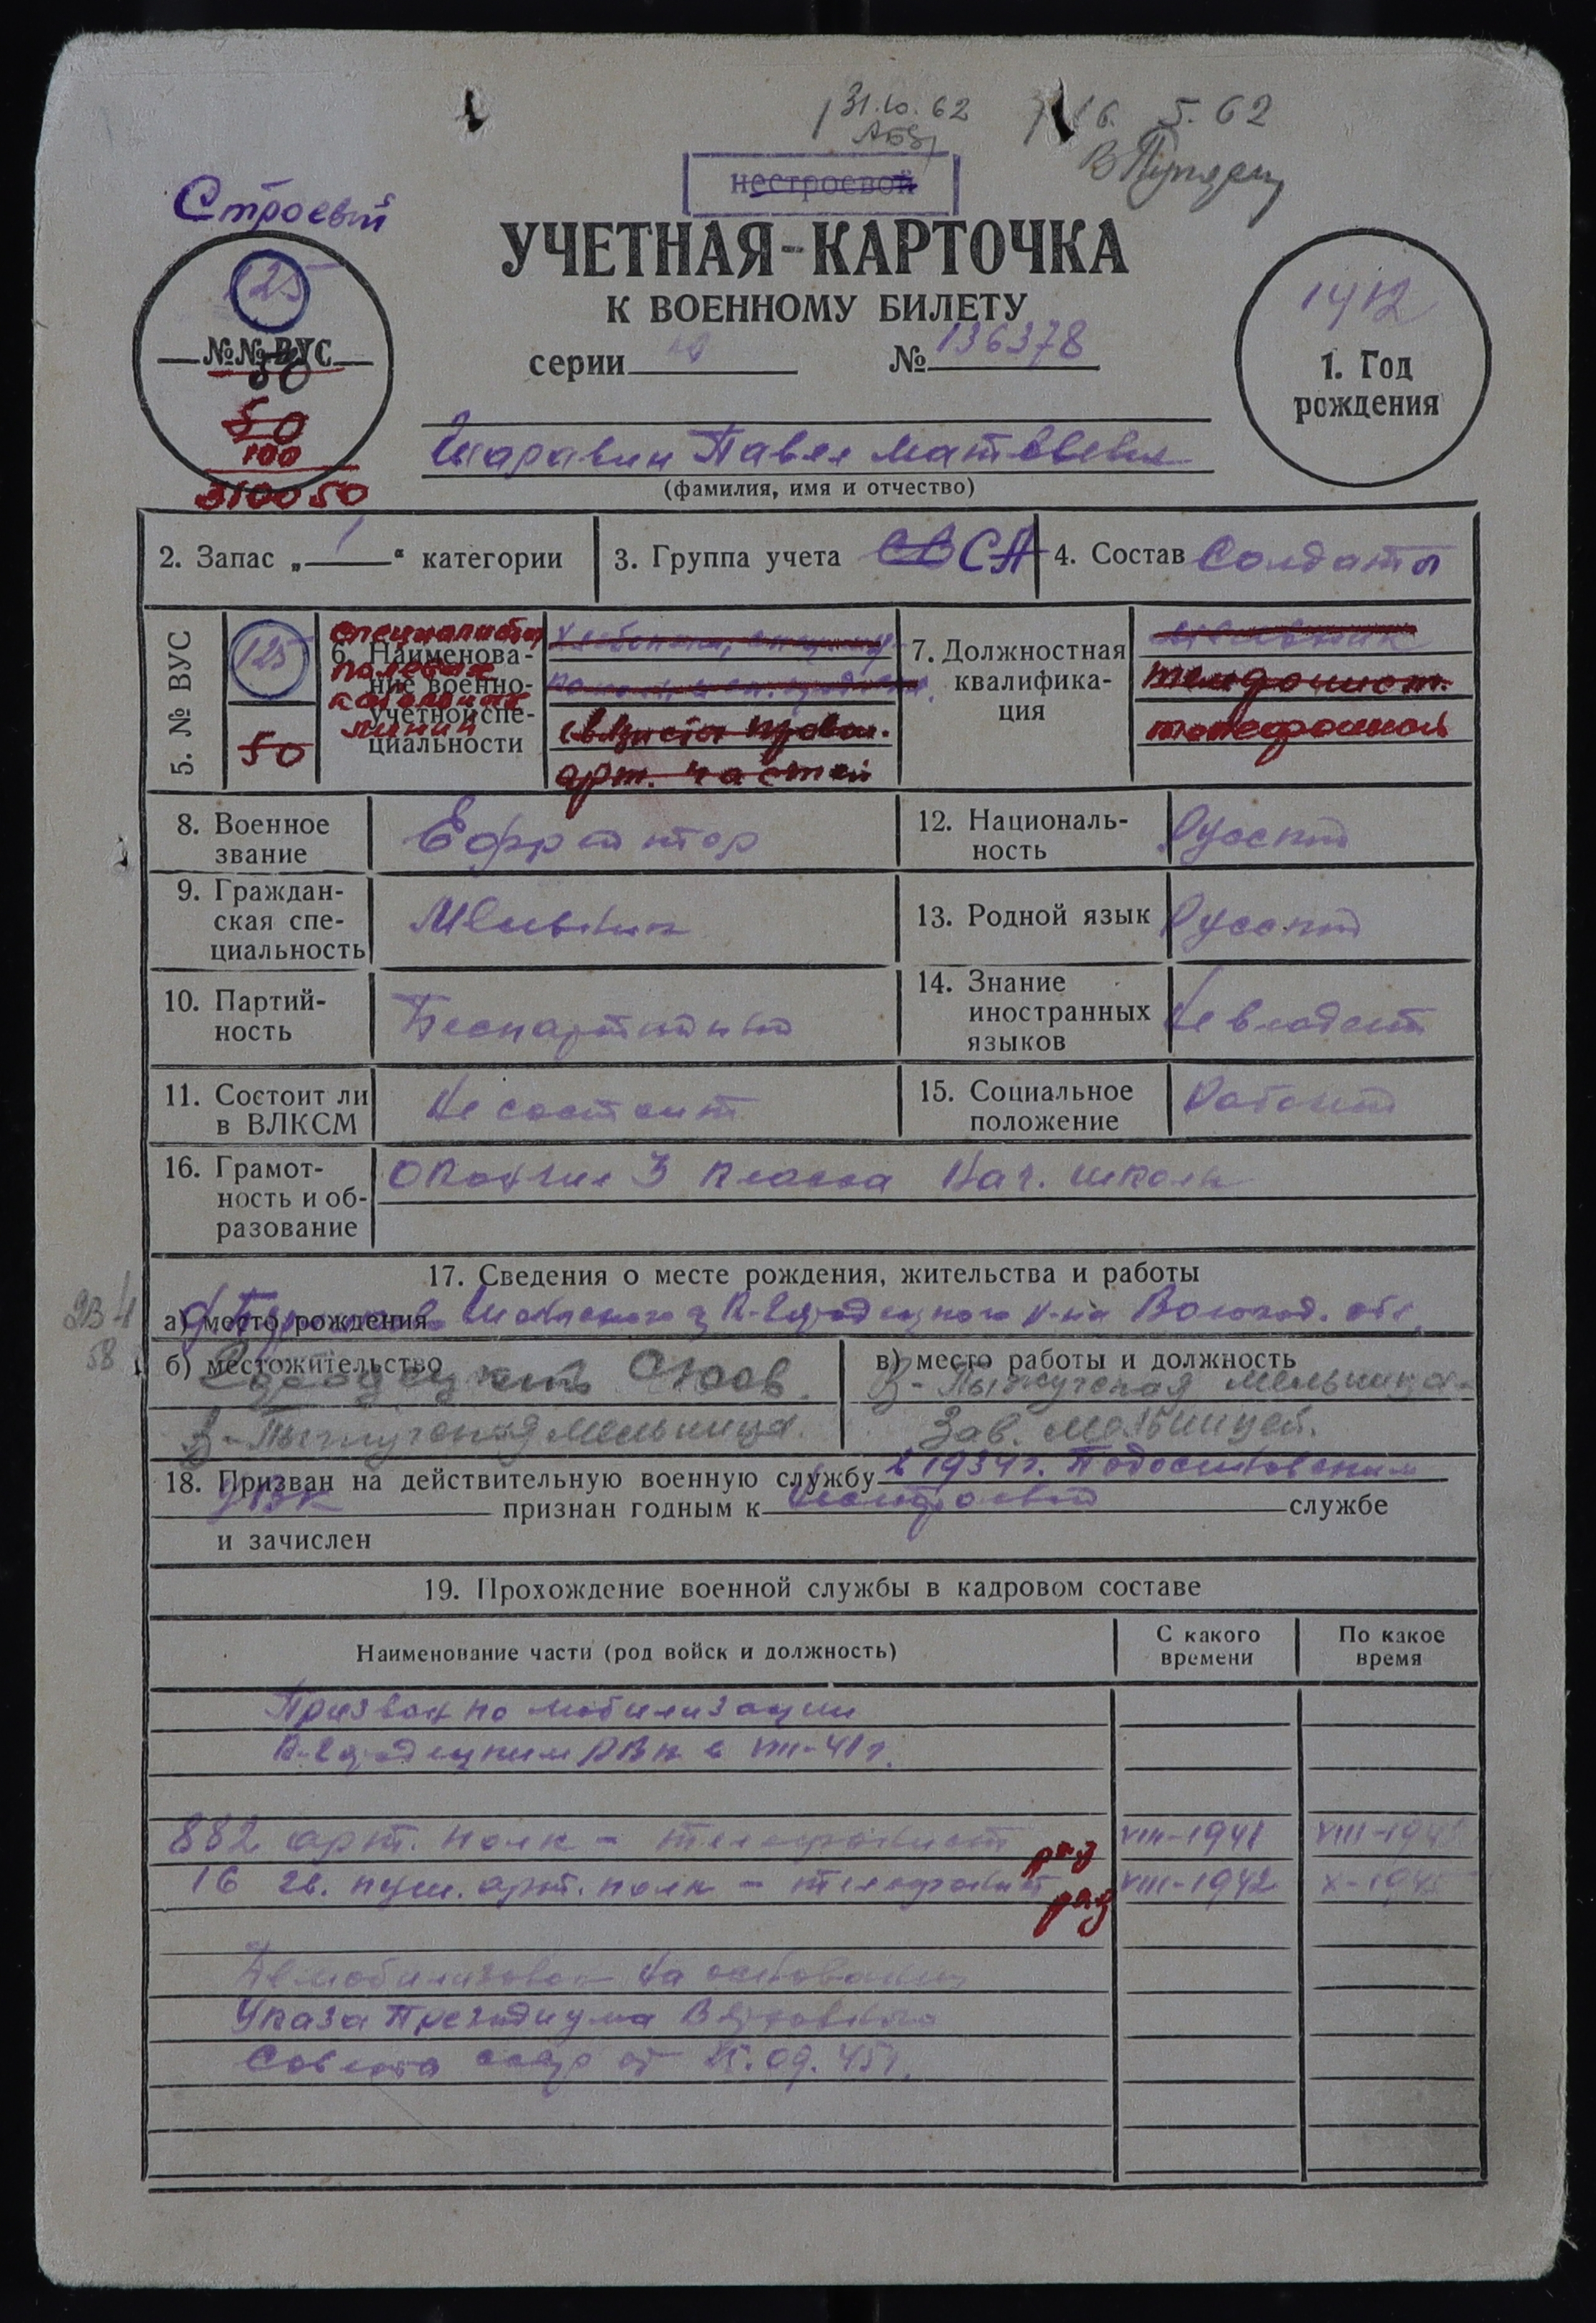 31.10.62
16. 5. 62
нестроевой
Строевый
УЧЕТНАЯ-КАРТОЧКА
К ВОЕННОМУ БИЛЕТУ
серии № 136378
125
№№ ВУС
50
50
100
3100 50
1912
1. Год
рождения
Шаравин Павел Матвеевич
(фамилия, имя и отчество)
2. Запас „ 1 “ категории
3. Группа учета СВ СА
4. Состав Солдаты
5. № ВУС
125
50
6. Наименова-
ние военно-
учетной спе-
циальности
специалисты
полевых
кабельных
линий
связисты
арт. частей
7. Должностная
квалифика-
ция
телефонист.
телефонист
8. Военное
звание
Ефрейтор
12. Националь-
ность
Русский
9. Граждан-
ская спе-
циальность
13. Родной язык
Русский
10. Партий-
ность
Беспартийный
14. Знание
иностранных
языков
Не владеет
11. Состоит ли
в ВЛКСМ
Не состоит
15. Социальное
положение
Рабочий
16. Грамот-
ность и об-
разование
Окончил 3 класса Нач. школы
17. Сведения о месте рождения, жительства и работы
а) место рождения К-Городецкого р-на Вологод. обл.
б) местожительство
мельница.
в) место работы и должность
мельница
Зав. мельницей.
18. Призван на действительную военную службу в 1934г. Подосиновским
РВК признан годным к службе
и зачислен
19. Прохождение военной службы в кадровом составе
Наименование части (род войск и должность)
С какого
времени
По какое
время
Призван по мобилизации
К-Городецким РВК в VIII-41г.
882 арт. полк - телефонист VIII-1941 VIII-1942
16 гв. пуш. арт. полк - телефонист VIII-1942 X-1945
Демобилизован на основании
Указа Президиума Верховного
Совета СССР от 25.09.45г.